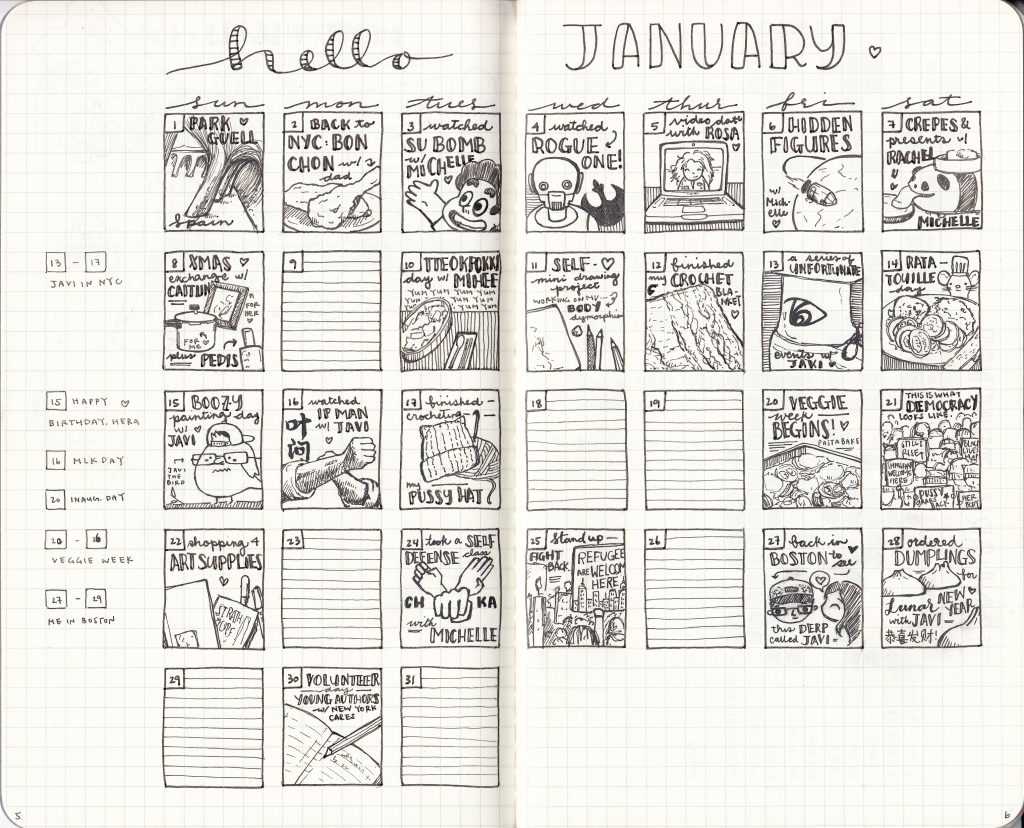 hello
JANUARY
sun mon tues wed thur fri sat
1 PARK
GUELL
Spain
2 BACK to
NYC: BON
CHON w/
dad
3 watched
SU BOMB
w/
MICHELLE
4 watched
ROGUE
ONE!
5 video date
with ROSA
6 HIDDEN
FIGURES
w/
Mich-
elle
7 CREPES &
presents w/
RACHEL
MICHELLE
13 - 17
JAVI IN NYC
8 XMAS
exchange w/
CAITLIN
FOR
HER
FOR
ME
plus PEDIS
9
10 TTEOKPOKKI
day w/ MIHEE
YUM YUM YUM YUM
YUM YUM YUM YUM
11 SELF-
mini drawing
project
WORKING ON MY
BODY
dysmorphia
12 finished
my CROCHET
BLA
NKET
13 a series of
UNFORTUNATE
events w/
JAVI
14 RATA-
TOUILLE
day
15 HAPPY
BIRTHDAY, HERA
16 MLK DAY
20 INAUG. DAY
15 BOOZY
painting day
w/
JAVI
JAVI
THE
BIRD
16 watched
IP MAN
w/ JAVI
叶
问
17 finished
crocheting
my
PUSSY HAT
18
19
20 VEGGIE
week
BEGINS!
PASTA BAKE
21 THIS IS WHAT
DEMOCRACY
LOOKS LIKE.
STILL I
RISE!
BLACK
LIVES
IMMIGRANTS
WELCOME
HERE
PUSSY
GRABS
BACK
20 -
VEGGIE WEEK
27 - 29
ME IN BOSTON
22 shopping 4
ART SUPPLIES
23
24 took a SELF
DEFENSE class
CH KA
with
MICHELLE
25 Stand up
FIGHT
BACK
REFUGEES
ARE WELCOME
HERE
26
27 back in
BOSTON to
see
this DERP
called JAVI
28 ordered
DUMPLINGS
for
Lunar NEW
YEAR
with JAVI
恭喜发财!
29
30 VOLUNTEER
day
YOUNG AUTHORS
w/ NEW YORK
CARES
31
5
6